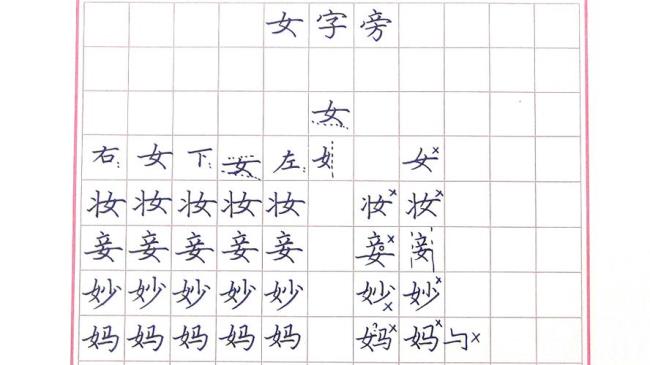 女字旁
女
右: 女 下: 女 左: 女 女×
妆妆妆妆妆 妆× 妆×
妾妾妾妾妾 妾× 妾
妙妙妙妙妙 妙× 妙×
妈妈妈妈妈 妈× 妈× 与×